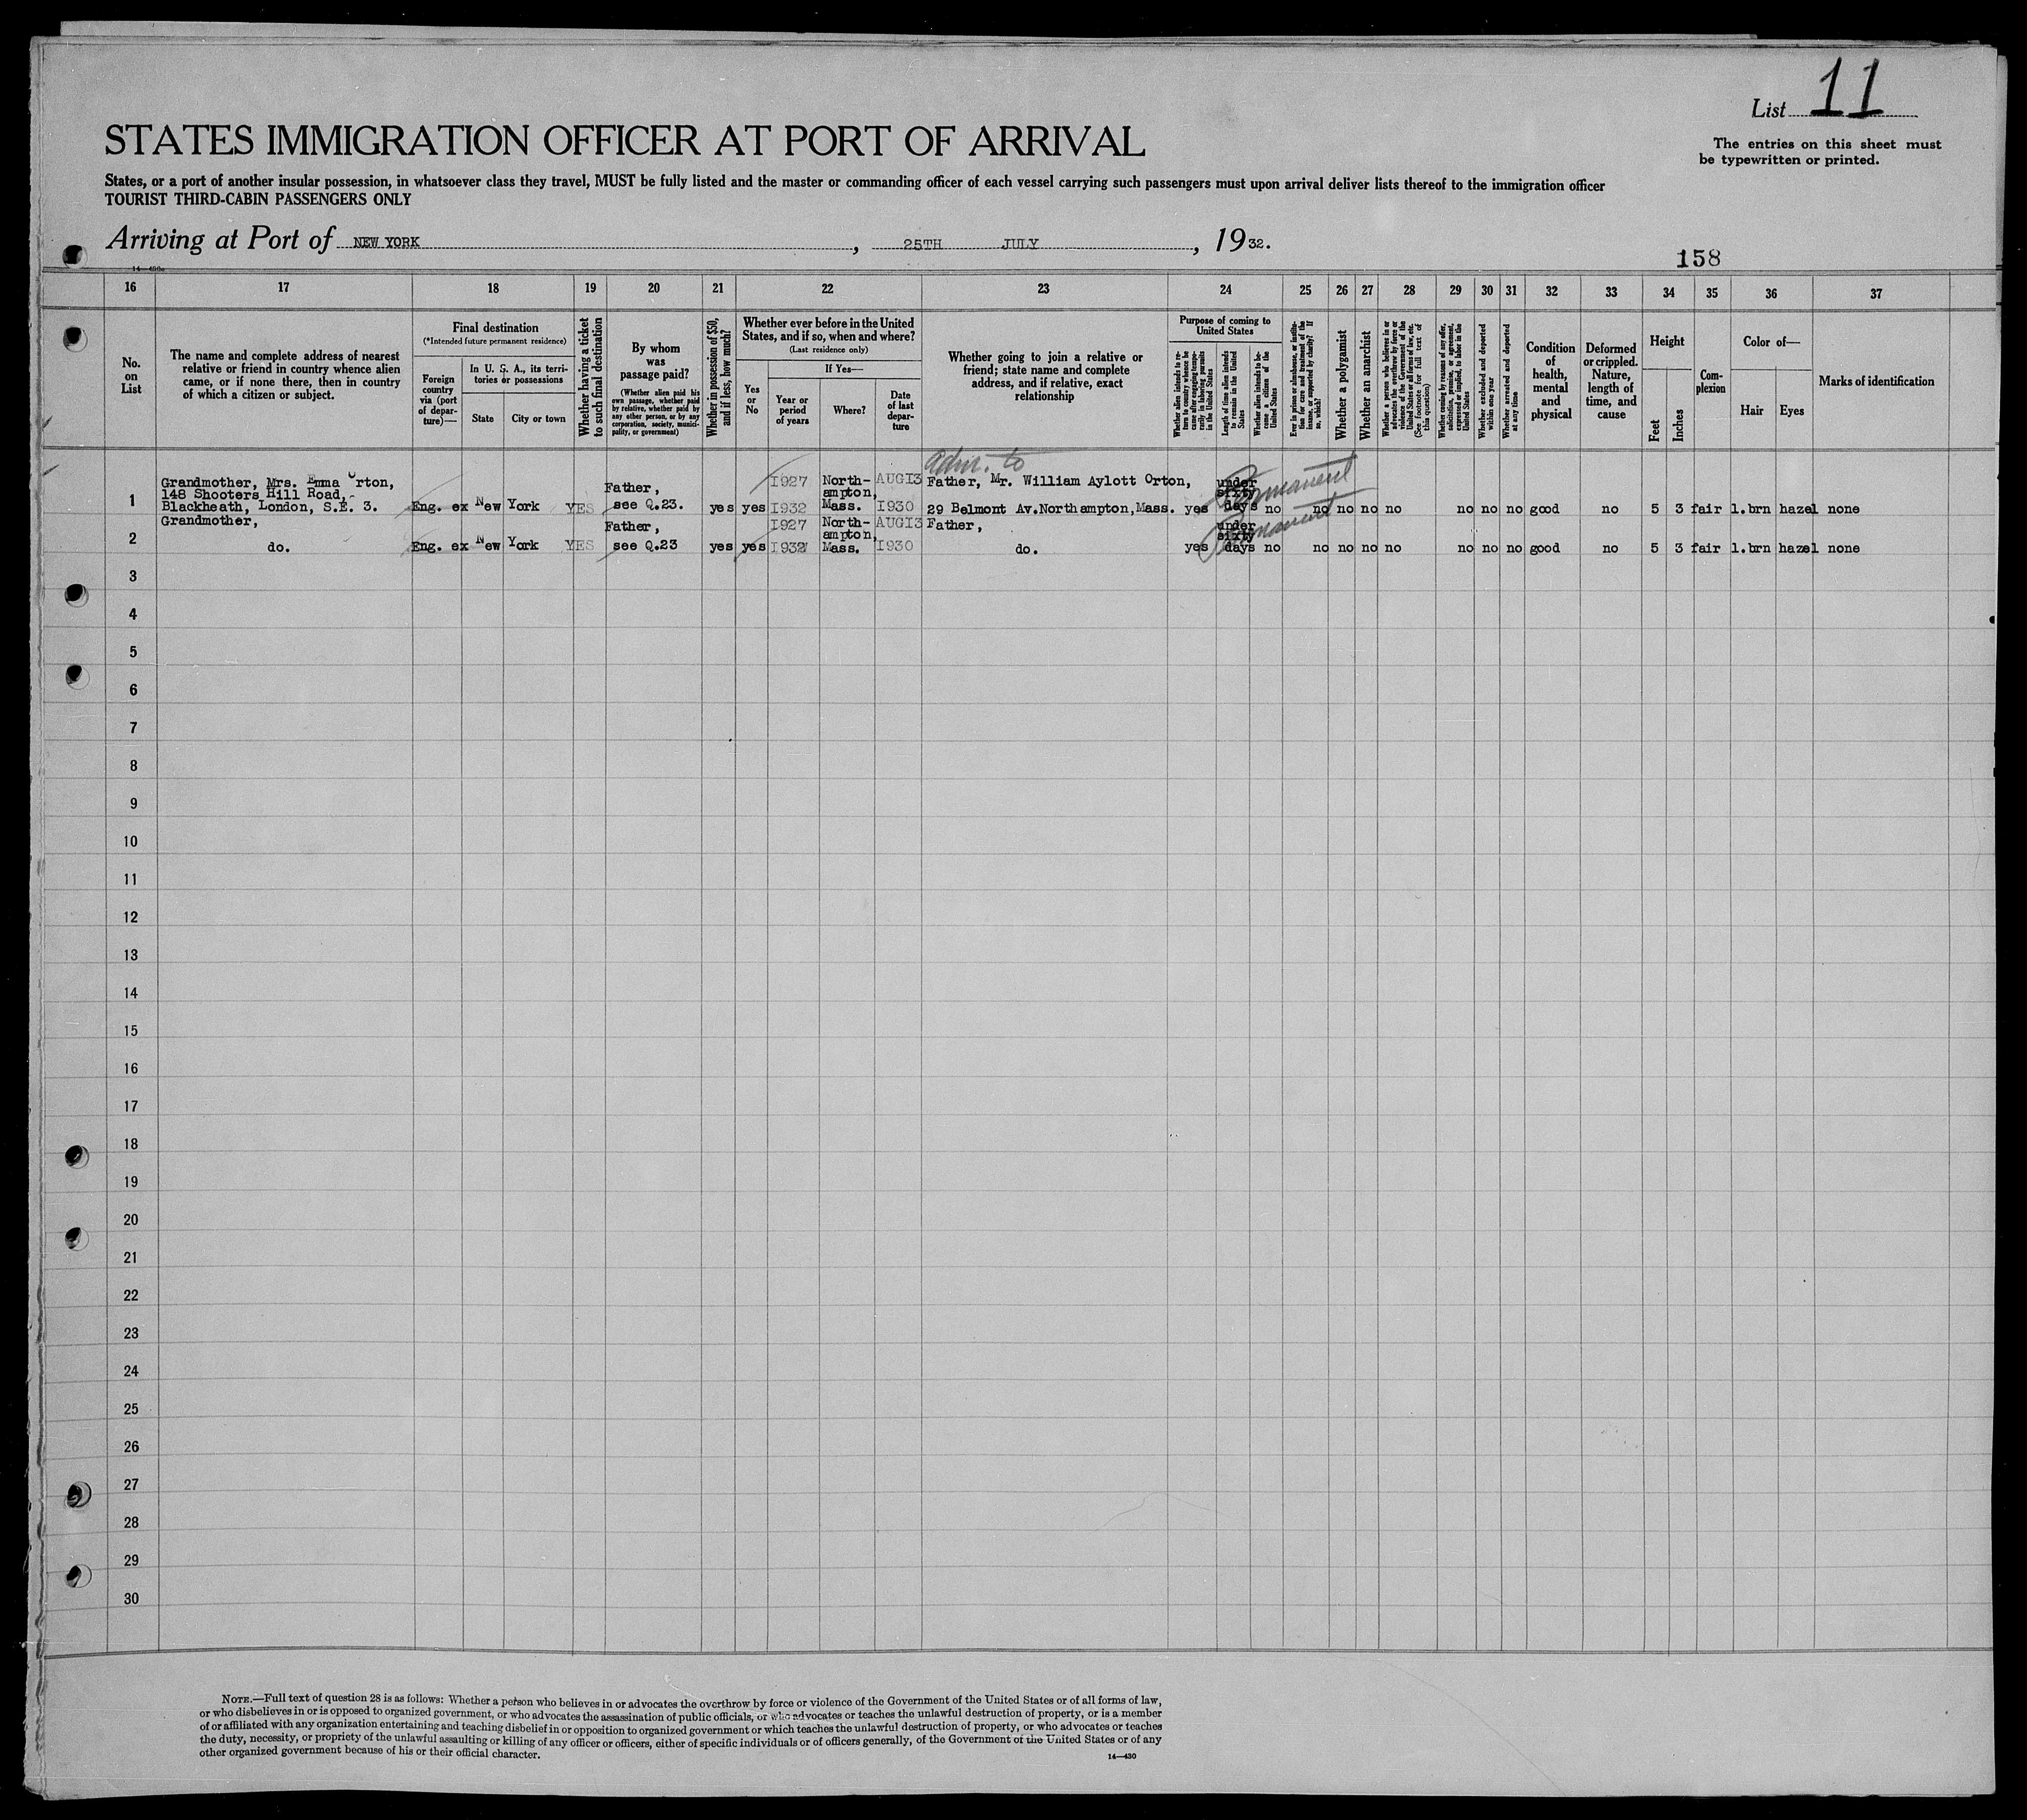 List 11
The entries on this sheet must
be typewritten or printed.
STATES IMMIGRATION OFFICER AT PORT OF ARRIVAL
States, or a port of another insular possession, in whatsoever class they travel, MUST be fully listed and the master or commanding officer of each vessel carrying such passengers must upon arrival deliver lists thereof to the immigration officer
TOURIST THIRD-CABIN PASSENGERS ONLY
Arriving at Port of NEW YORK, 25TH JULY, 1932.
158
16 17 18 19 20 21 22 23 24 25 26 27 28 29 30 31 32 33 34 35 36 37
No.
on
List
The name and complete address of nearest
relative or friend in country whence alien
came, or if none there, then in country
of which a citizen or subject.
Final destination
(*Intended future permanent residence)
Foreign
country
via (port
of depar-
ture)—
In U. S. A., its terri-
tories or possessions
State
City or town
Whether having a ticket
to such final destination
By whom
was
passage paid?
(Whether alien paid his
own passage, whether paid
by relative, whether paid by
any other person, or by any
corporation, society, munici-
pality, or government)
Whether in possession of $50,
and if less, how much?
Whether ever before in the United
States, and if so, when and where?
(Last residence only)
Yes
or
No
If Yes—
Year or
period
of years
Where?
Date
of last
depar-
ture
Whether going to join a relative or
friend; state name and complete
address, and if relative, exact
relationship
Purpose of coming to
United States
Whether alien intends to re-
turn to country whence he
came after engaging tempo-
rarily in laboring pursuits
in the United States
Length of time alien intends
to remain in the United
States
Whether alien intends to be-
come a citizen of the
United States
Ever in prison or almshouse, or institu-
tion for care and treatment of the
insane, or supported by charity? If
so, which?
Whether a polygamist
Whether an anarchist
Whether a person who believes in or
advocates the overthrow by force or
violence of the Government of the
United States or all forms of law, etc.
(See footnote for full text of
this question)
Whether coming by reasons of any offer,
solicitation, promise, or agreement,
expressed or implied, to labor in the
United States
Whether excluded and deported
within one year
Whether arrested and deported
at any time
Condition
of
health,
mental
and
physical
Deformed
or crippled.
Nature,
length of
time, and
cause
Height
Feet
Inches
Com-
plexion
Color of—
Hair
Eyes
Marks of identification
Adm. to
Grandmother, Mrs. Emma Orton, 1927 North- AUG13 Father, Mr. William Aylott Orton, under
148 Shooters Hill Road, Father, ampton, sixty Permanent
1 Blackheath, London, S.E. 3. Eng. ex New York YES see Q.23. yes yes 1932 Mass. 1930 29 Belmont Av.Northampton,Mass. yes days no no no no no no no no good no 5 3 fair l.brn hazel none
Grandmother, Father, 1927 North- AUG13 Father, under
ampton, sixty Permanent
2 do. Eng. ex New York YES see Q.23 yes yes 1932 Mass. 1930 do. yes days no no no no no no no no good no 5 3 fair l.brn hazel none
3
4
5
6
7
8
9
10
11
12
13
14
15
16
17
18
19
20
21
22
23
24
25
26
27
28
29
30
NOTE.—Full text of question 28 is as follows: Whether a person who believes in or advocates the overthrow by force or violence of the Government of the United States or of all forms of law,
or who disbelieves in or is opposed to organized government, or who advocates the assassination of public officials, or who advocates or teaches the unlawful destruction of property, or is a member
of or affiliated with any organization entertaining and teaching disbelief in or opposition to organized government or which teaches the unlawful destruction of property, or who advocates or teaches
the duty, necessity, or propriety of the unlawful assaulting or killing of any officer or officers, either of specific individuals or of officers generally, of the Government of the United States or of any
other organized government because of his or their official character.
14—430